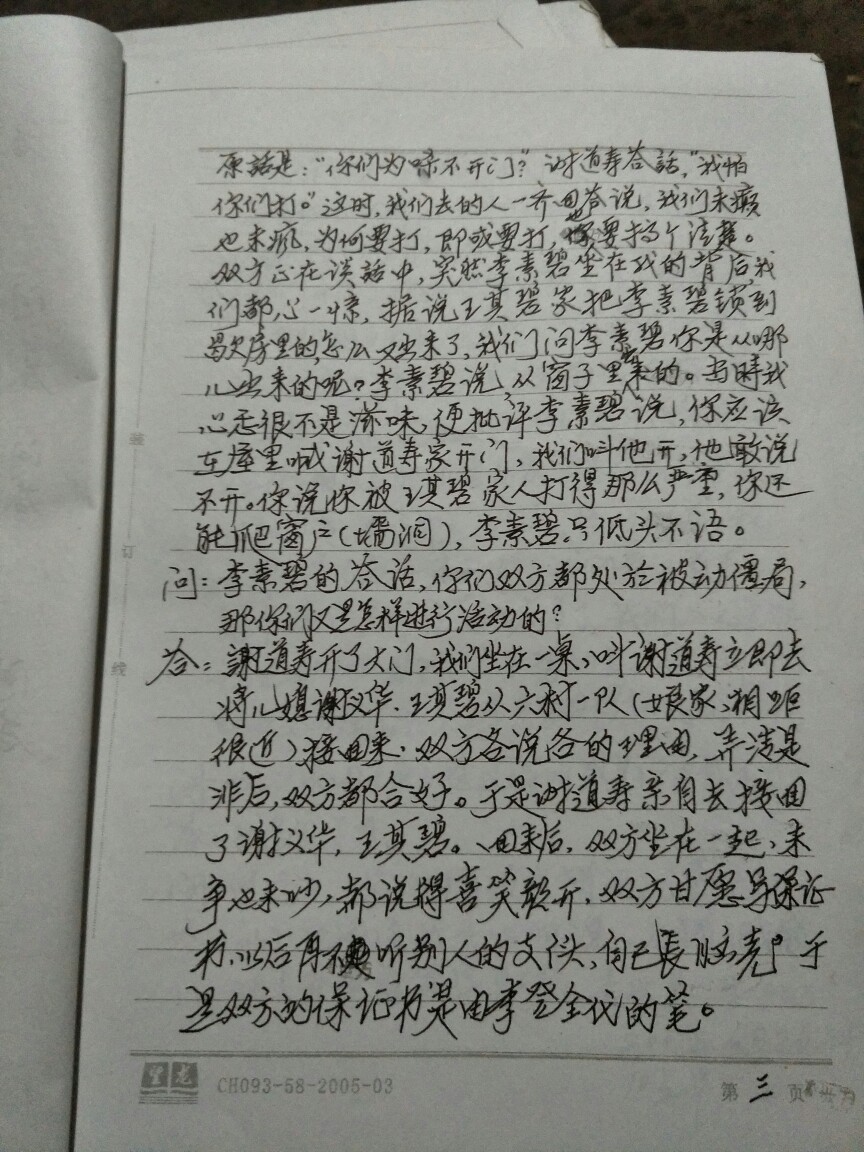 原話是：“你们为啥不开门？谢道寿答話，“我怕
你们打。”这时，我们去的人一齐回答说，我们未癫
也未疯，为何要打，即或要打，也要搞个清楚。
双方正在谈話中，突然李素碧坐在我的背后，我
们都心一惊，据说王其碧家把李素碧锁到
歇房里的，怎么又出来了，我们问李素碧你是从哪
儿出来的呢？李素碧说，从窗子里来的。当時我
心态很不是滋味，便批评李素碧说，你应该
在屋里喊谢道寿家开门，我们叫他开，他敢说
不开。你说你被王其碧家人打得那么严重，你还
能爬窗户（墙洞），李素碧只低头不语。
问：李素碧的答话，你们双方都处於被动僵局，
那你们又是怎样进行活动的？
答：謝道寿开了大门，我们坐在一桌，叫谢道寿立即去
将儿媳谢义华、王其碧从六村一队（娘家、相距
很近）接回来，双方各说各的理由，弄清是
非后，双方都合好。于是谢道寿亲自去接回
了谢义华，王其碧。回来后，双方坐在一起，未
争也未吵，都说得喜笑颜开，双方甘愿写保证
书，以后再不听别人的支使，自己長脑壳。于
是双方的保证书是由李登全代的笔。
CH093-58-2005-03
第三页
装
订
线